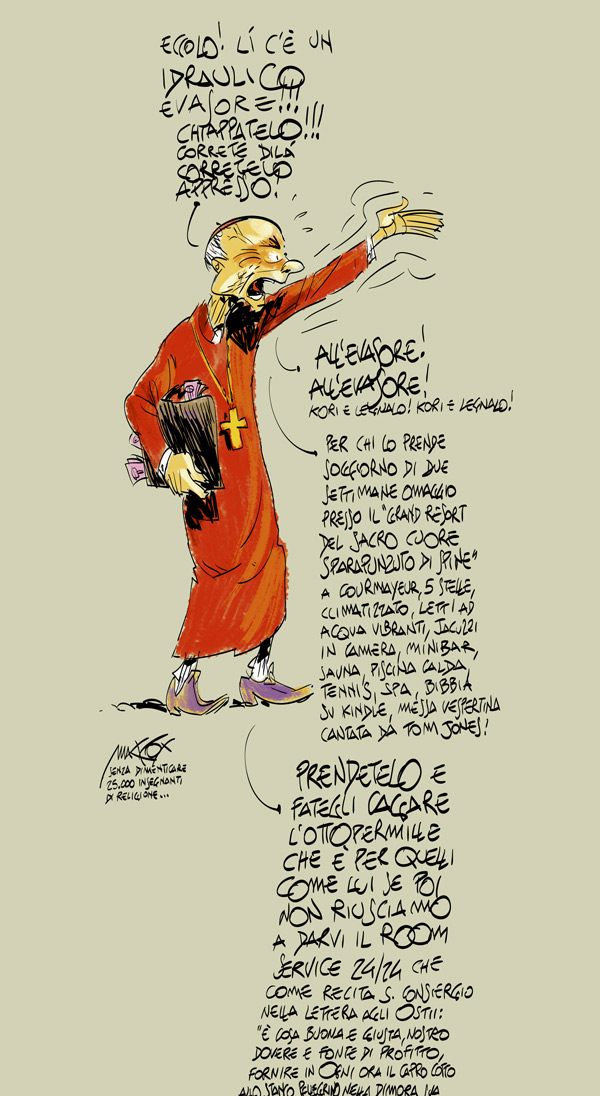 ECCOLO! LÍ C'È UN
IDRAULICO
EVASORE!!!
CHIAPPATELO!!!
CORRETE DILÁ
CORRETELO
APPRESSO!
ALL'EVASORE!
ALL'EVASORE!
KORI E LEGNALO! KORI E LEGNALO!
PER CHI LO PRENDE
SOGGIORNO DI DUE
SETTIMANE OMAGGIO
PRESSO IL "GRAND RESORT
DEL SACRO CUORE
SPARAPUNZUTO DI SPINE"
A COURMAYEUR, 5 STELLE,
CLIMATIZZATO, LETTI AD
ACQUA VIBRANTI, JACUZZI
IN CAMERA, MINIBAR,
SAUNA, PISCINA CALDA,
TENNIS, SPA, BIBBIA
SU KINDLE, MESSA VESPERTINA
CANTATA DA TOM JONES!
MAKKOX
SENZA DIMENTICARE
25.000 INSEGNANTI
DI RELIGIONE...
PRENDETELO E
FATEGLI CACARE
L'OTTOPERMILLE
CHE È PER QUELLI
COME LUI SE POI
NON RIUSCIAMO
A DARVI IL ROOM
SERVICE 24/24 CHE
COME RECITA S. CONSIERGIO
NELLA LETTERA AGLI OSTII:
"È COSA BUONA E GIUSTA, NOSTRO
DOVERE E FONTE DI PROFITTO,
FORNIRE IN OGNI ORA IL CAPPO COTTO
ALLO STANCO PELLEGRINO NELLA DIMORA SUA